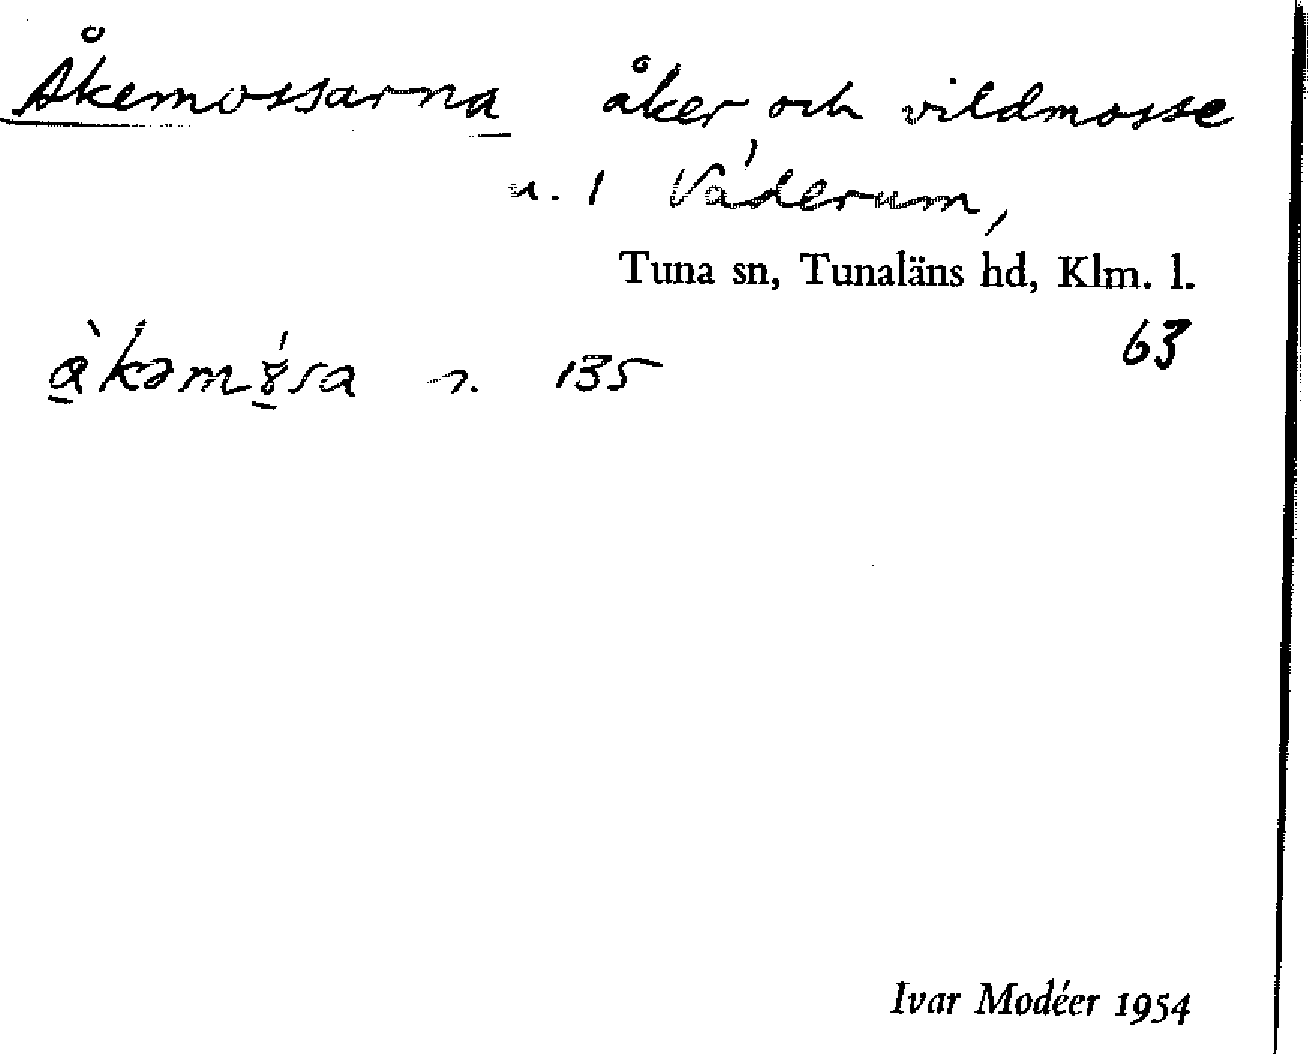 Åkemossarna åker och vildmosse
n. 1 Väderum,
Tuna sn, Tunaläns hd, Klm. l.
63
135
Ivar Modéer 1954